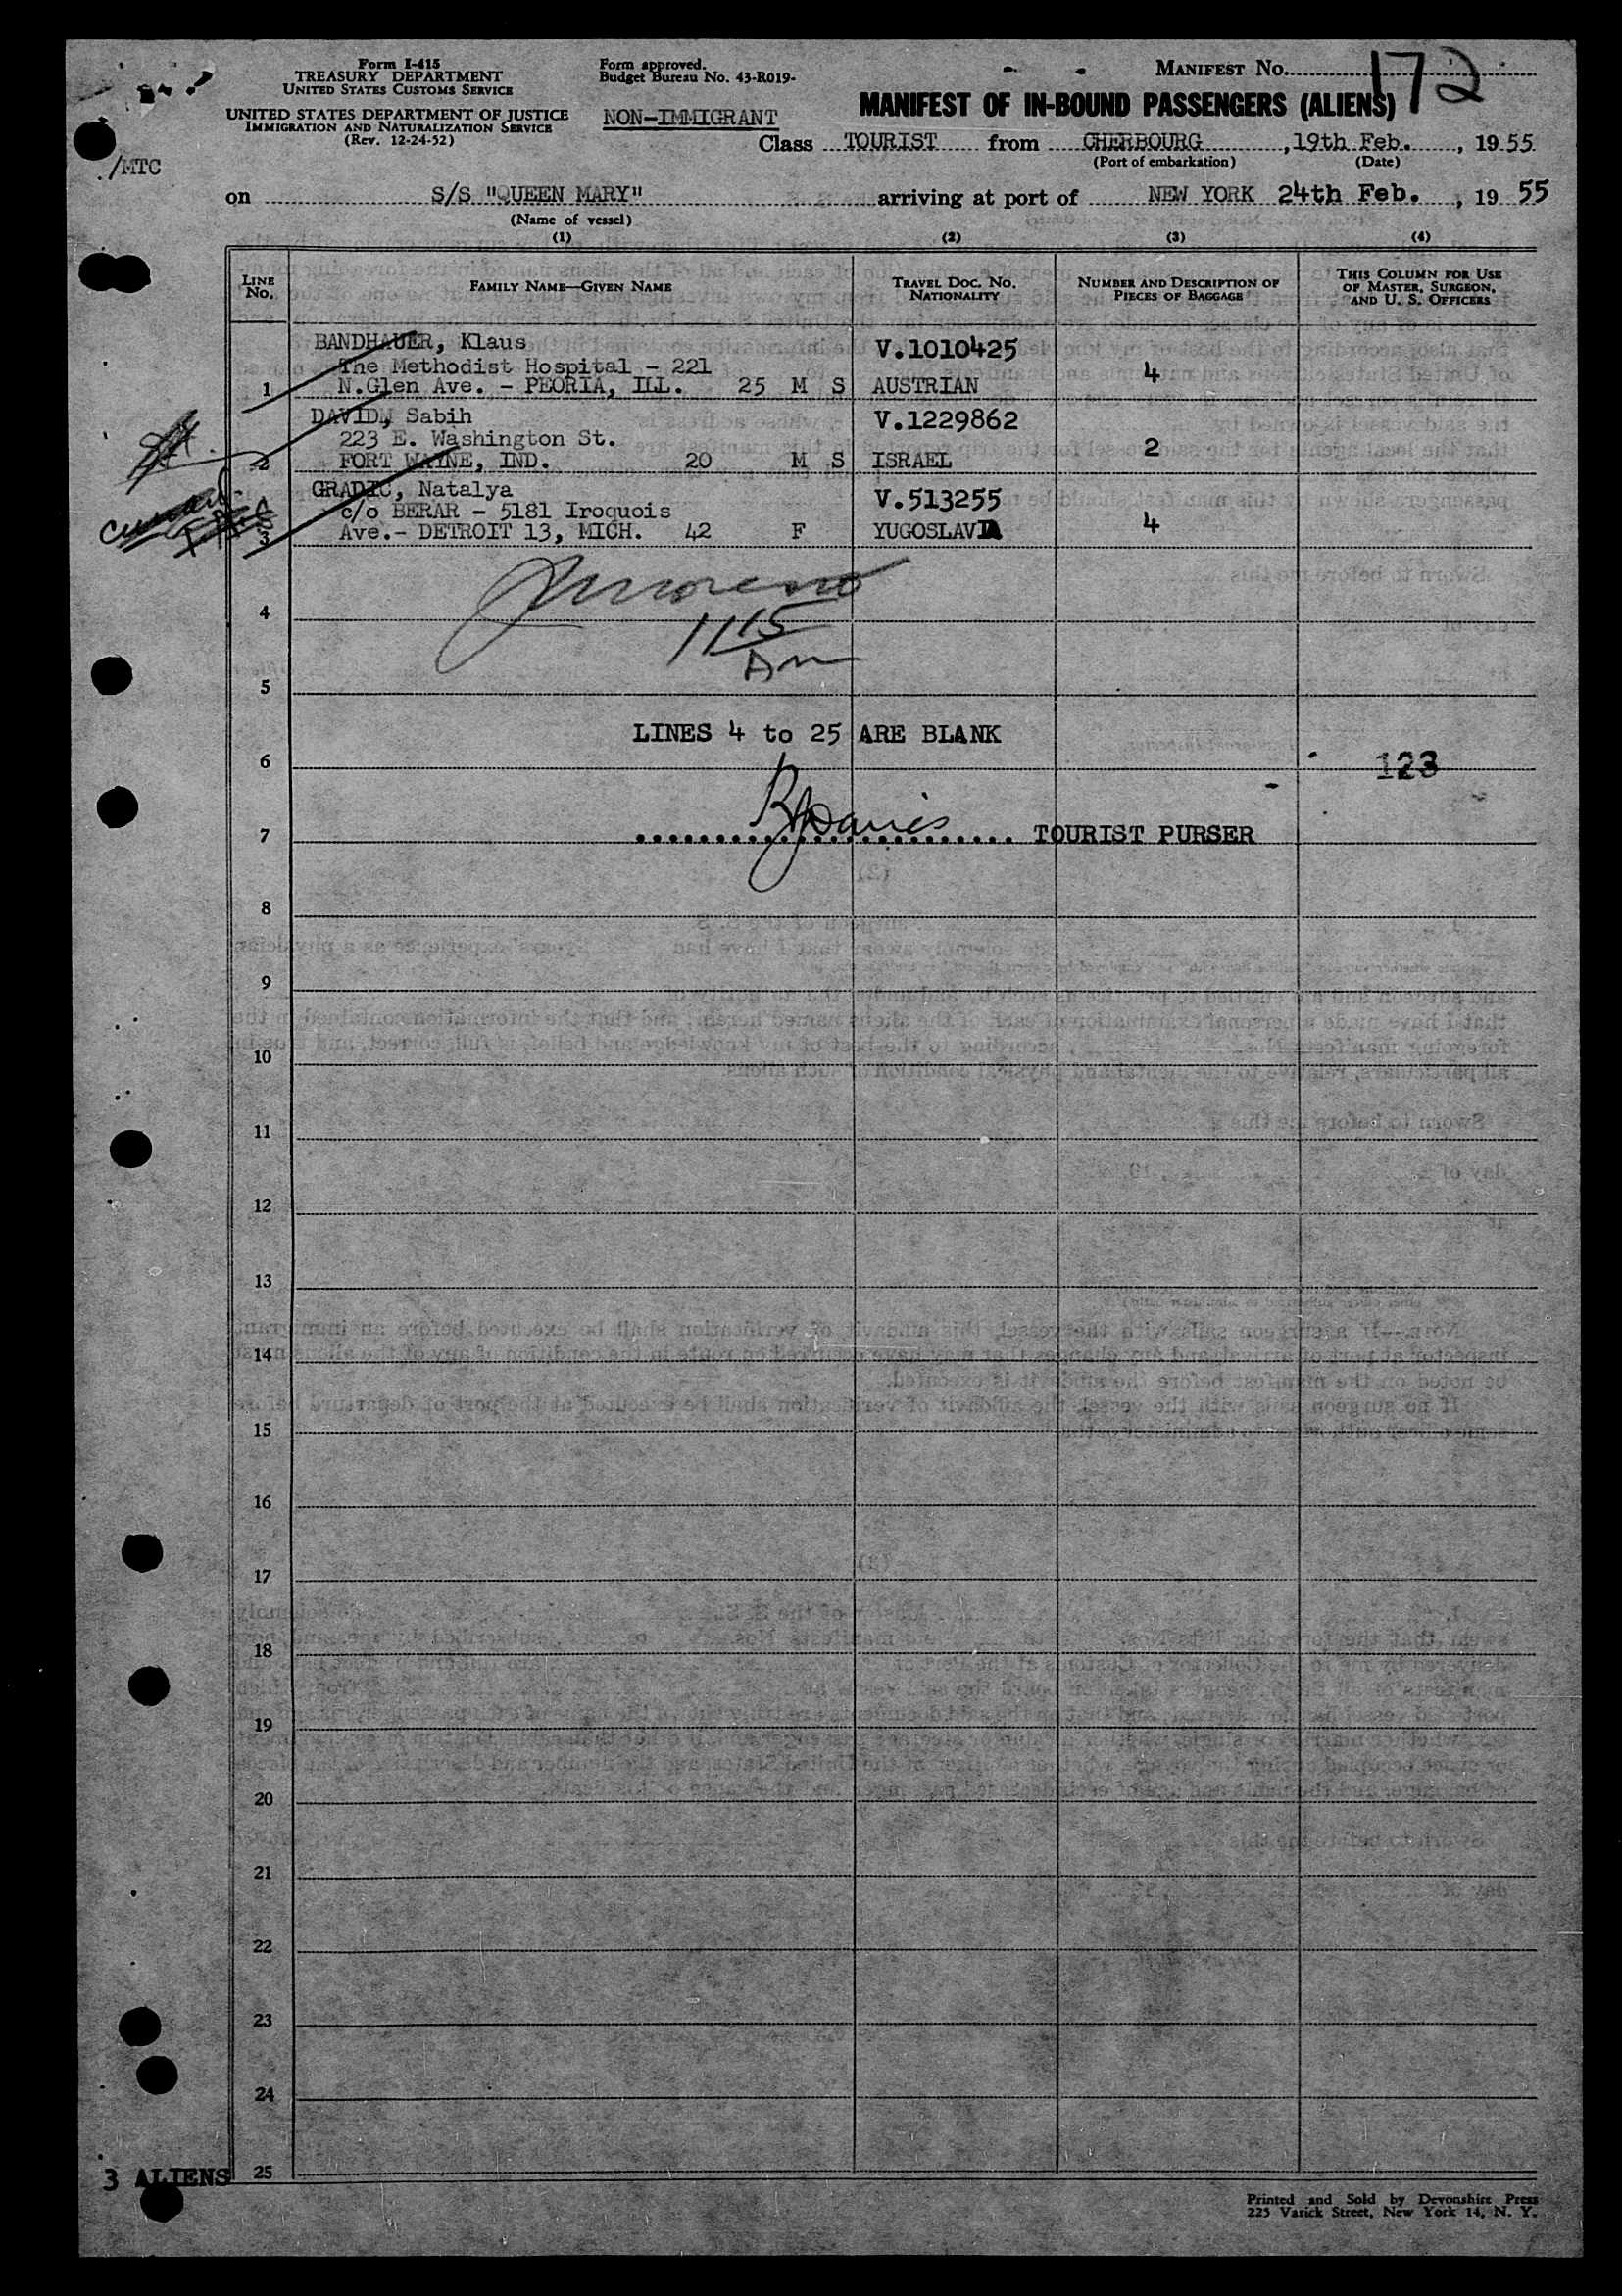 Form I-415
TREASURY DEPARTMENT
UNITED STATES CUSTOMS SERVICE
UNITED STATES DEPARTMENT OF JUSTICE
IMMIGRATION AND NATURALIZATION SERVICE
(Rev. 12-24-52)
/MTC
Form approved.
Budget Bureau No. 43-R019-
NON-IMMIGRANT
MANIFEST NO. 172
MANIFEST OF IN-BOUND PASSENGERS (ALIENS)
Class TOURIST from CHERBOURG, 19th Feb., 1955
(Port of embarkation) (Date)
on S/S "QUEEN MARY" arriving at port of NEW YORK 24th Feb., 19 55
(Name of vessel)
(1) (2) (3) (4)
LINE NO. FAMILY NAME—GIVEN NAME TRAVEL DOC. NO. NATIONALITY NUMBER AND DESCRIPTION OF PIECES OF BAGGAGE THIS COLUMN FOR USE OF MASTER, SURGEON, AND U. S. OFFICERS
BANDHAUER, Klaus V.1010425
The Methodist Hospital - 221
1 N.Glen Ave. - PEORIA, ILL. 25 M S AUSTRIAN 4
DAVID, Sabih V.1229862
223 E. Washington St.
2 FORT WAYNE, IND. 20 M S ISRAEL 2
GRADIC, Natalya V.513255
c/o BERAR - 5181 Iroquois
3 Ave.- DETROIT 13, MICH. 42 F YUGOSLAVIA 4
4
11 15
Am
5
LINES 4 to 25 ARE BLANK
6 123
RJDavies
7 TOURIST PURSER
8
9
10
11
12
13
14
15
16
17
18
19
20
21
22
23
24
25
3 ALIENS
Printed and Sold by Devonshire Press
225 Varick Street, New York 14, N. Y.